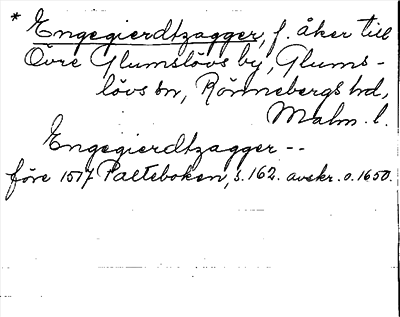 * Engegierdtzagger, f. åker till
Övre Glumslövs by, Glums-
lövs sn, Rönnebergs hd,
Malm. l.
Engegierdtzagger --
före 1517 Palteboken, s. 162. avskr. o. 1650.